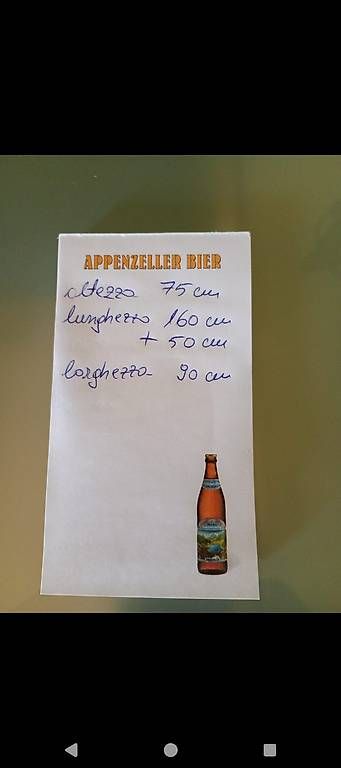 APPENZELLER BIER
altezza 75 cm
lunghezza 160 cm
+ 50 cm
larghezza 90 cm